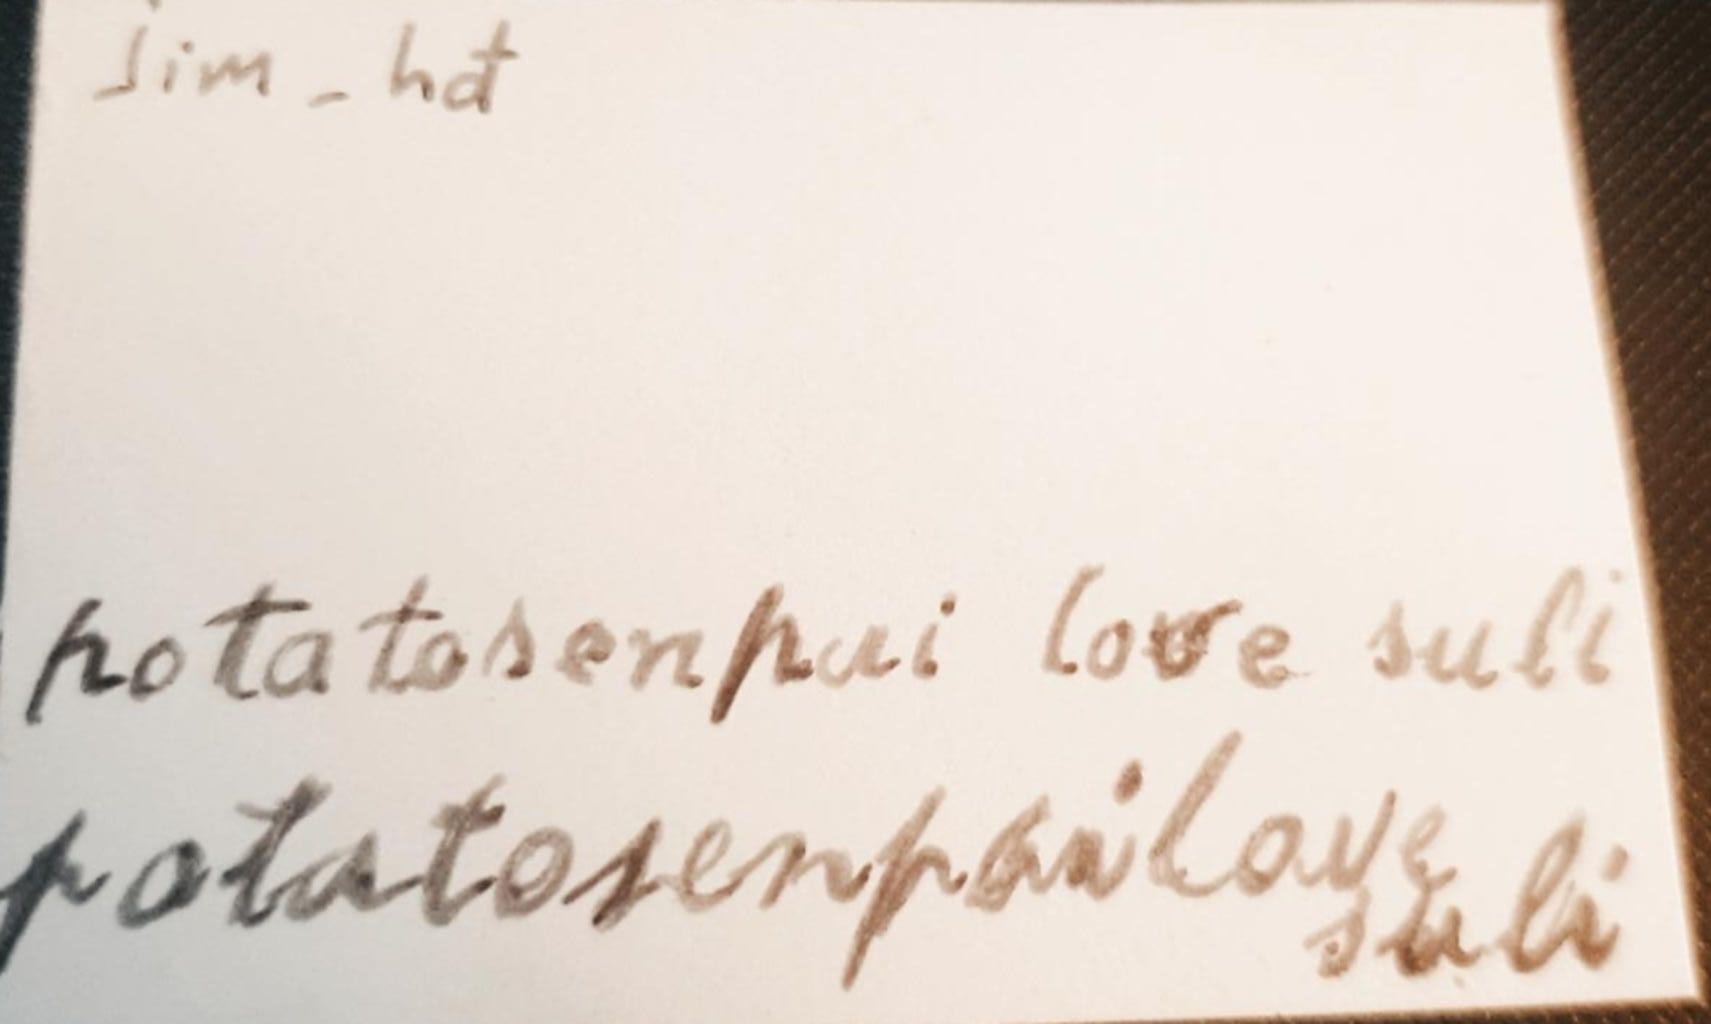 jim - hđ
potatosenpai love suli
potatosenpai love
suli